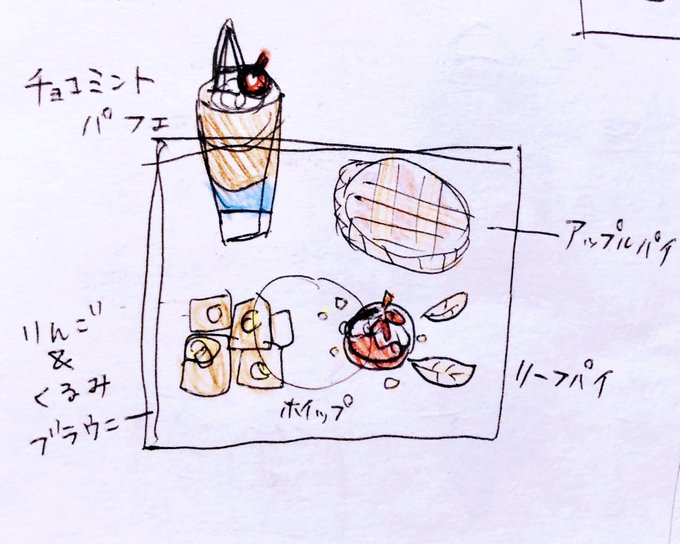 チョコミント
パフェ
アップルパイ
りんご
&
くるみ
ブラウニー
ホイップ
リーフパイ